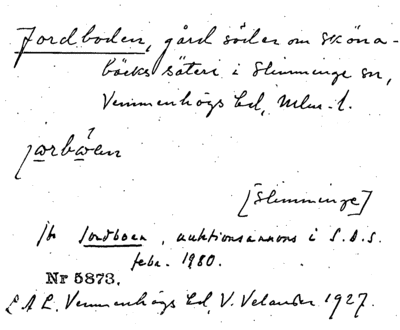 Jordboden, gård söder om Sköna-
bäcks säteri i Slimminge sn,
Vemmenhögs hd, Mlm. l.
jorbóen
[Slimminge]
jfr Jordboen, auktionsannons i S.D.S.
febr. 1980.
Nr 5873.
L A L. Vemmenhögs hd, V. Velander 1927.